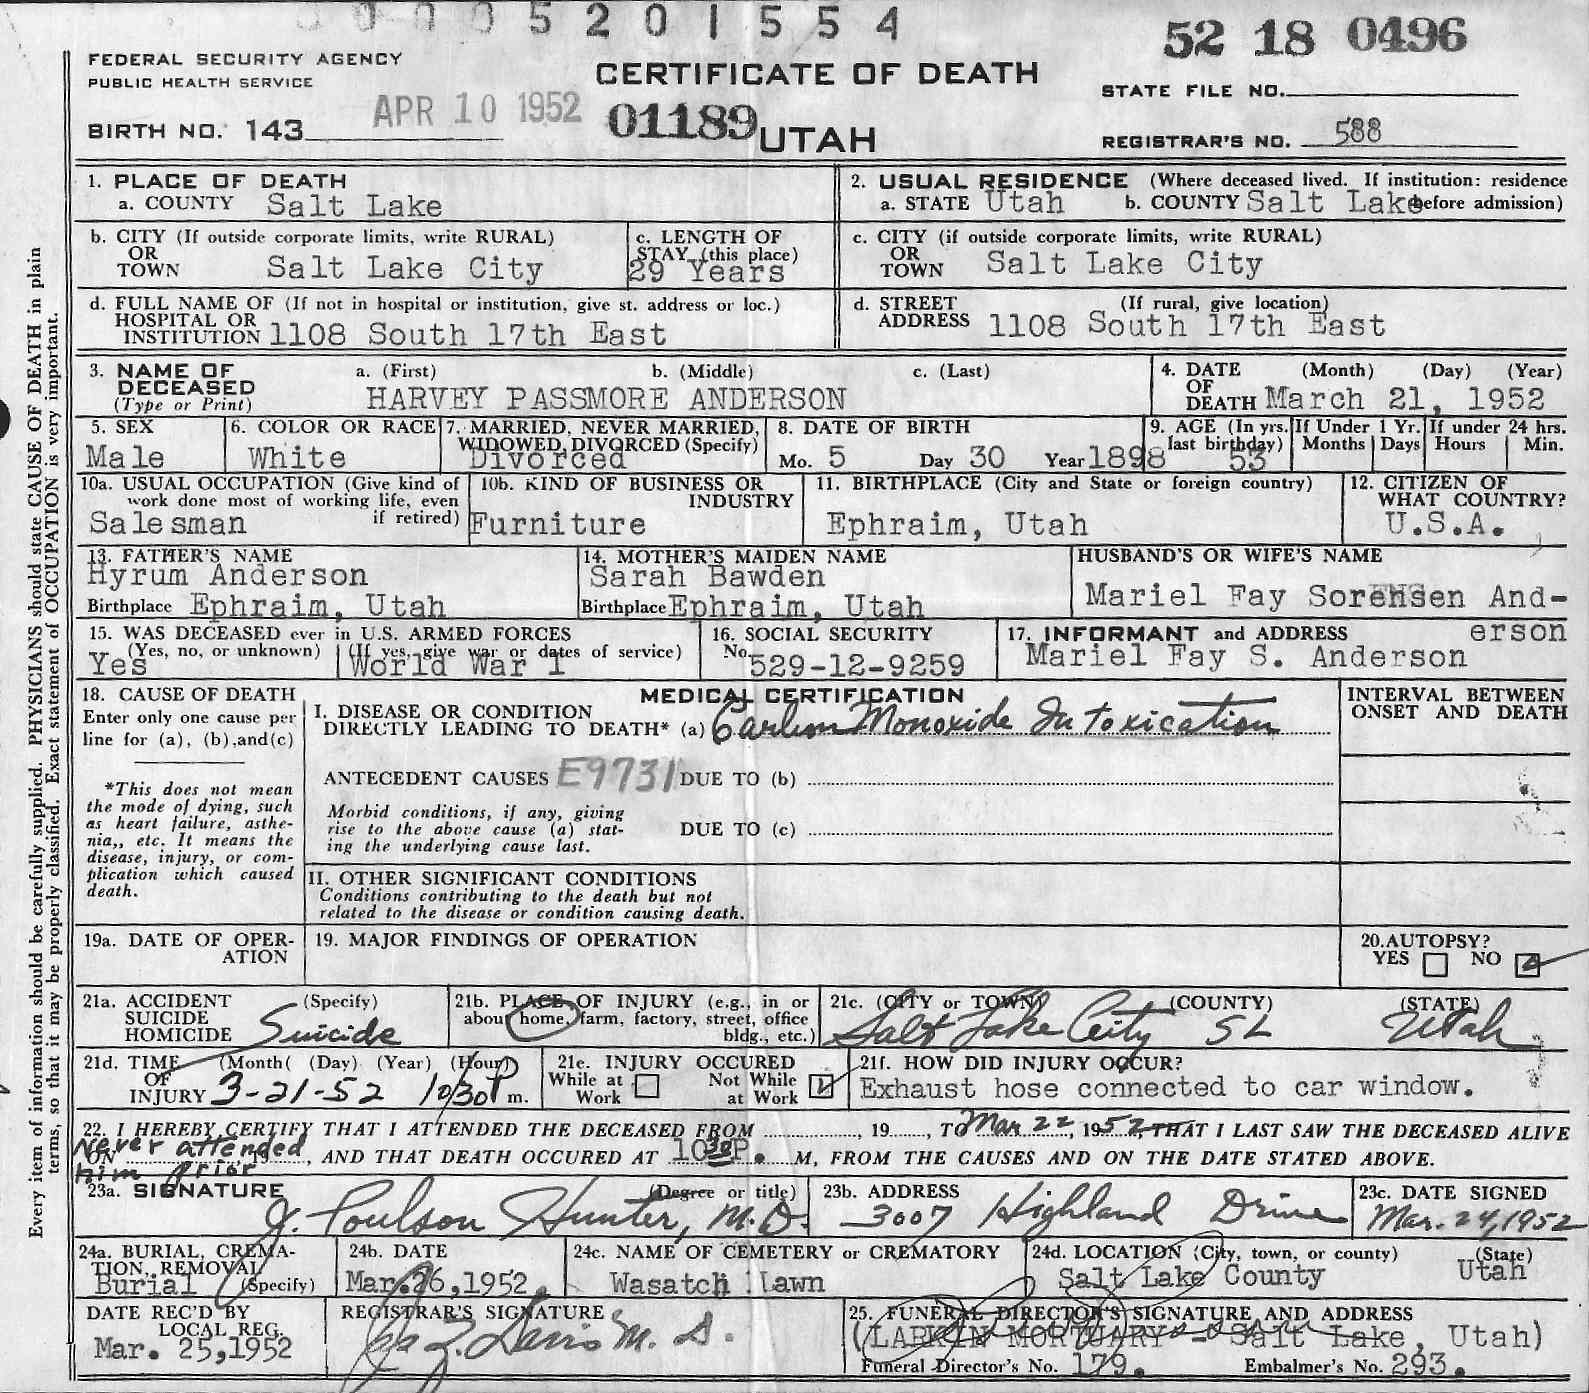 0005201554
52 18 0496
FEDERAL SECURITY AGENCY
PUBLIC HEALTH SERVICE
CERTIFICATE OF DEATH
STATE FILE NO.
APR 10 1952
BIRTH NO. 143
01189 UTAH
REGISTRAR'S NO. 588
Every item of information should be carefully supplied. PHYSICIANS should state CAUSE OF DEATH in plain
terms, so that it may be properly classified. Exact statement of OCCUPATION is very important.
1. PLACE OF DEATH
a. COUNTY Salt Lake
2. USUAL RESIDENCE (Where deceased lived. If institution: residence
a. STATE Utah b. COUNTY Salt Lake before admission)
b. CITY (If outside corporate limits, write RURAL)
OR
TOWN Salt Lake City
c. LENGTH OF
STAY (this place)
29 Years
c. CITY (if outside corporate limits, write RURAL)
OR
TOWN Salt Lake City
d. FULL NAME OF (If not in hospital or institution, give st. address or loc.)
HOSPITAL OR
INSTITUTION 1108 South 17th East
d. STREET (If rural, give location)
ADDRESS 1108 South 17th East
3. NAME OF a. (First) b. (Middle) c. (Last)
DECEASED
(Type or Print) HARVEY PASSMORE ANDERSON
4. DATE (Month) (Day) (Year)
OF
DEATH March 21, 1952
5. SEX
Male
6. COLOR OR RACE
White
7. MARRIED, NEVER MARRIED,
WIDOWED, DIVORCED (Specify)
Divorced
8. DATE OF BIRTH
Mo. 5 Day 30 Year 1898
9. AGE (In yrs.
last birthday)
53
If Under 1 Yr.
Months Days
If under 24 hrs.
Hours Min.
10a. USUAL OCCUPATION (Give kind of
work done most of working life, even
if retired)
Salesman
10b. KIND OF BUSINESS OR
INDUSTRY
Furniture
11. BIRTHPLACE (City and State or foreign country)
Ephraim, Utah
12. CITIZEN OF
WHAT COUNTRY?
U.S.A.
13. FATHER'S NAME
Hyrum Anderson
Birthplace Ephraim, Utah
14. MOTHER'S MAIDEN NAME
Sarah Bawden
Birthplace Ephraim, Utah
HUSBAND'S OR WIFE'S NAME
Mariel Fay Sorensen And-
erson
15. WAS DECEASED ever in U.S. ARMED FORCES
(Yes, no, or unknown) (If yes, give war or dates of service)
Yes World War 1
16. SOCIAL SECURITY
No. 529-12-9259
17. INFORMANT and ADDRESS
Mariel Fay S. Anderson
18. CAUSE OF DEATH
Enter only one cause per
line for (a), (b), and (c)
*This does not mean
the mode of dying, such
as heart failure, asthe-
nia,, etc. It means the
disease, injury, or com-
plication which caused
death.
MEDICAL CERTIFICATION
I. DISEASE OR CONDITION
DIRECTLY LEADING TO DEATH* (a) Carbon Monoxide Intoxication
ANTECEDENT CAUSES E9731 DUE TO (b)
Morbid conditions, if any, giving
rise to the above cause (a) stat-
ing the underlying cause last.
DUE TO (c)
II. OTHER SIGNIFICANT CONDITIONS
Conditions contributing to the death but not
related to the disease or condition causing death.
INTERVAL BETWEEN
ONSET AND DEATH
19a. DATE OF OPER-
ATION
19. MAJOR FINDINGS OF OPERATION
20. AUTOPSY?
YES NO
21a. ACCIDENT (Specify)
SUICIDE
HOMICIDE Suicide
21b. PLACE OF INJURY (e.g., in or
about home, farm, factory, street, office
bldg., etc.)
21c. (CITY or TOWN) (COUNTY) (STATE)
Salt Lake City SL Utah
21d. TIME (Month( (Day) (Year) (Hour)
OF
INJURY 3-21-52 1030P m.
21e. INJURY OCCURED
While at Work Not While at Work
21f. HOW DID INJURY OCCUR?
Exhaust hose connected to car window.
22. I HEREBY CERTIFY THAT I ATTENDED THE DECEASED FROM , 19 , TO Mar 22, 1952, THAT I LAST SAW THE DECEASED ALIVE
ON Never attended him prior 19 , AND THAT DEATH OCCURED AT 1030P. M, FROM THE CAUSES AND ON THE DATE STATED ABOVE.
23a. SIGNATURE (Degree or title)
J. Poulson Hunter, M.D.
23b. ADDRESS
3007 Highland Drive
23c. DATE SIGNED
Mar. 24, 1952
24a. BURIAL, CREMA-
TION, REMOVAL
(Specify)
Burial
24b. DATE
Mar. 26, 1952
24c. NAME OF CEMETERY or CREMATORY
Wasatch Lawn
24d. LOCATION (City, town, or county) (State)
Salt Lake County Utah
DATE REC'D BY
LOCAL REG.
Mar. 25, 1952
REGISTRAR'S SIGNATURE
Davis M. D.
25. FUNERAL DIRECTOR'S SIGNATURE AND ADDRESS
(LARKIN MORTUARY - Salt Lake, Utah)
Funeral Director's No. 179. Embalmer's No. 293.